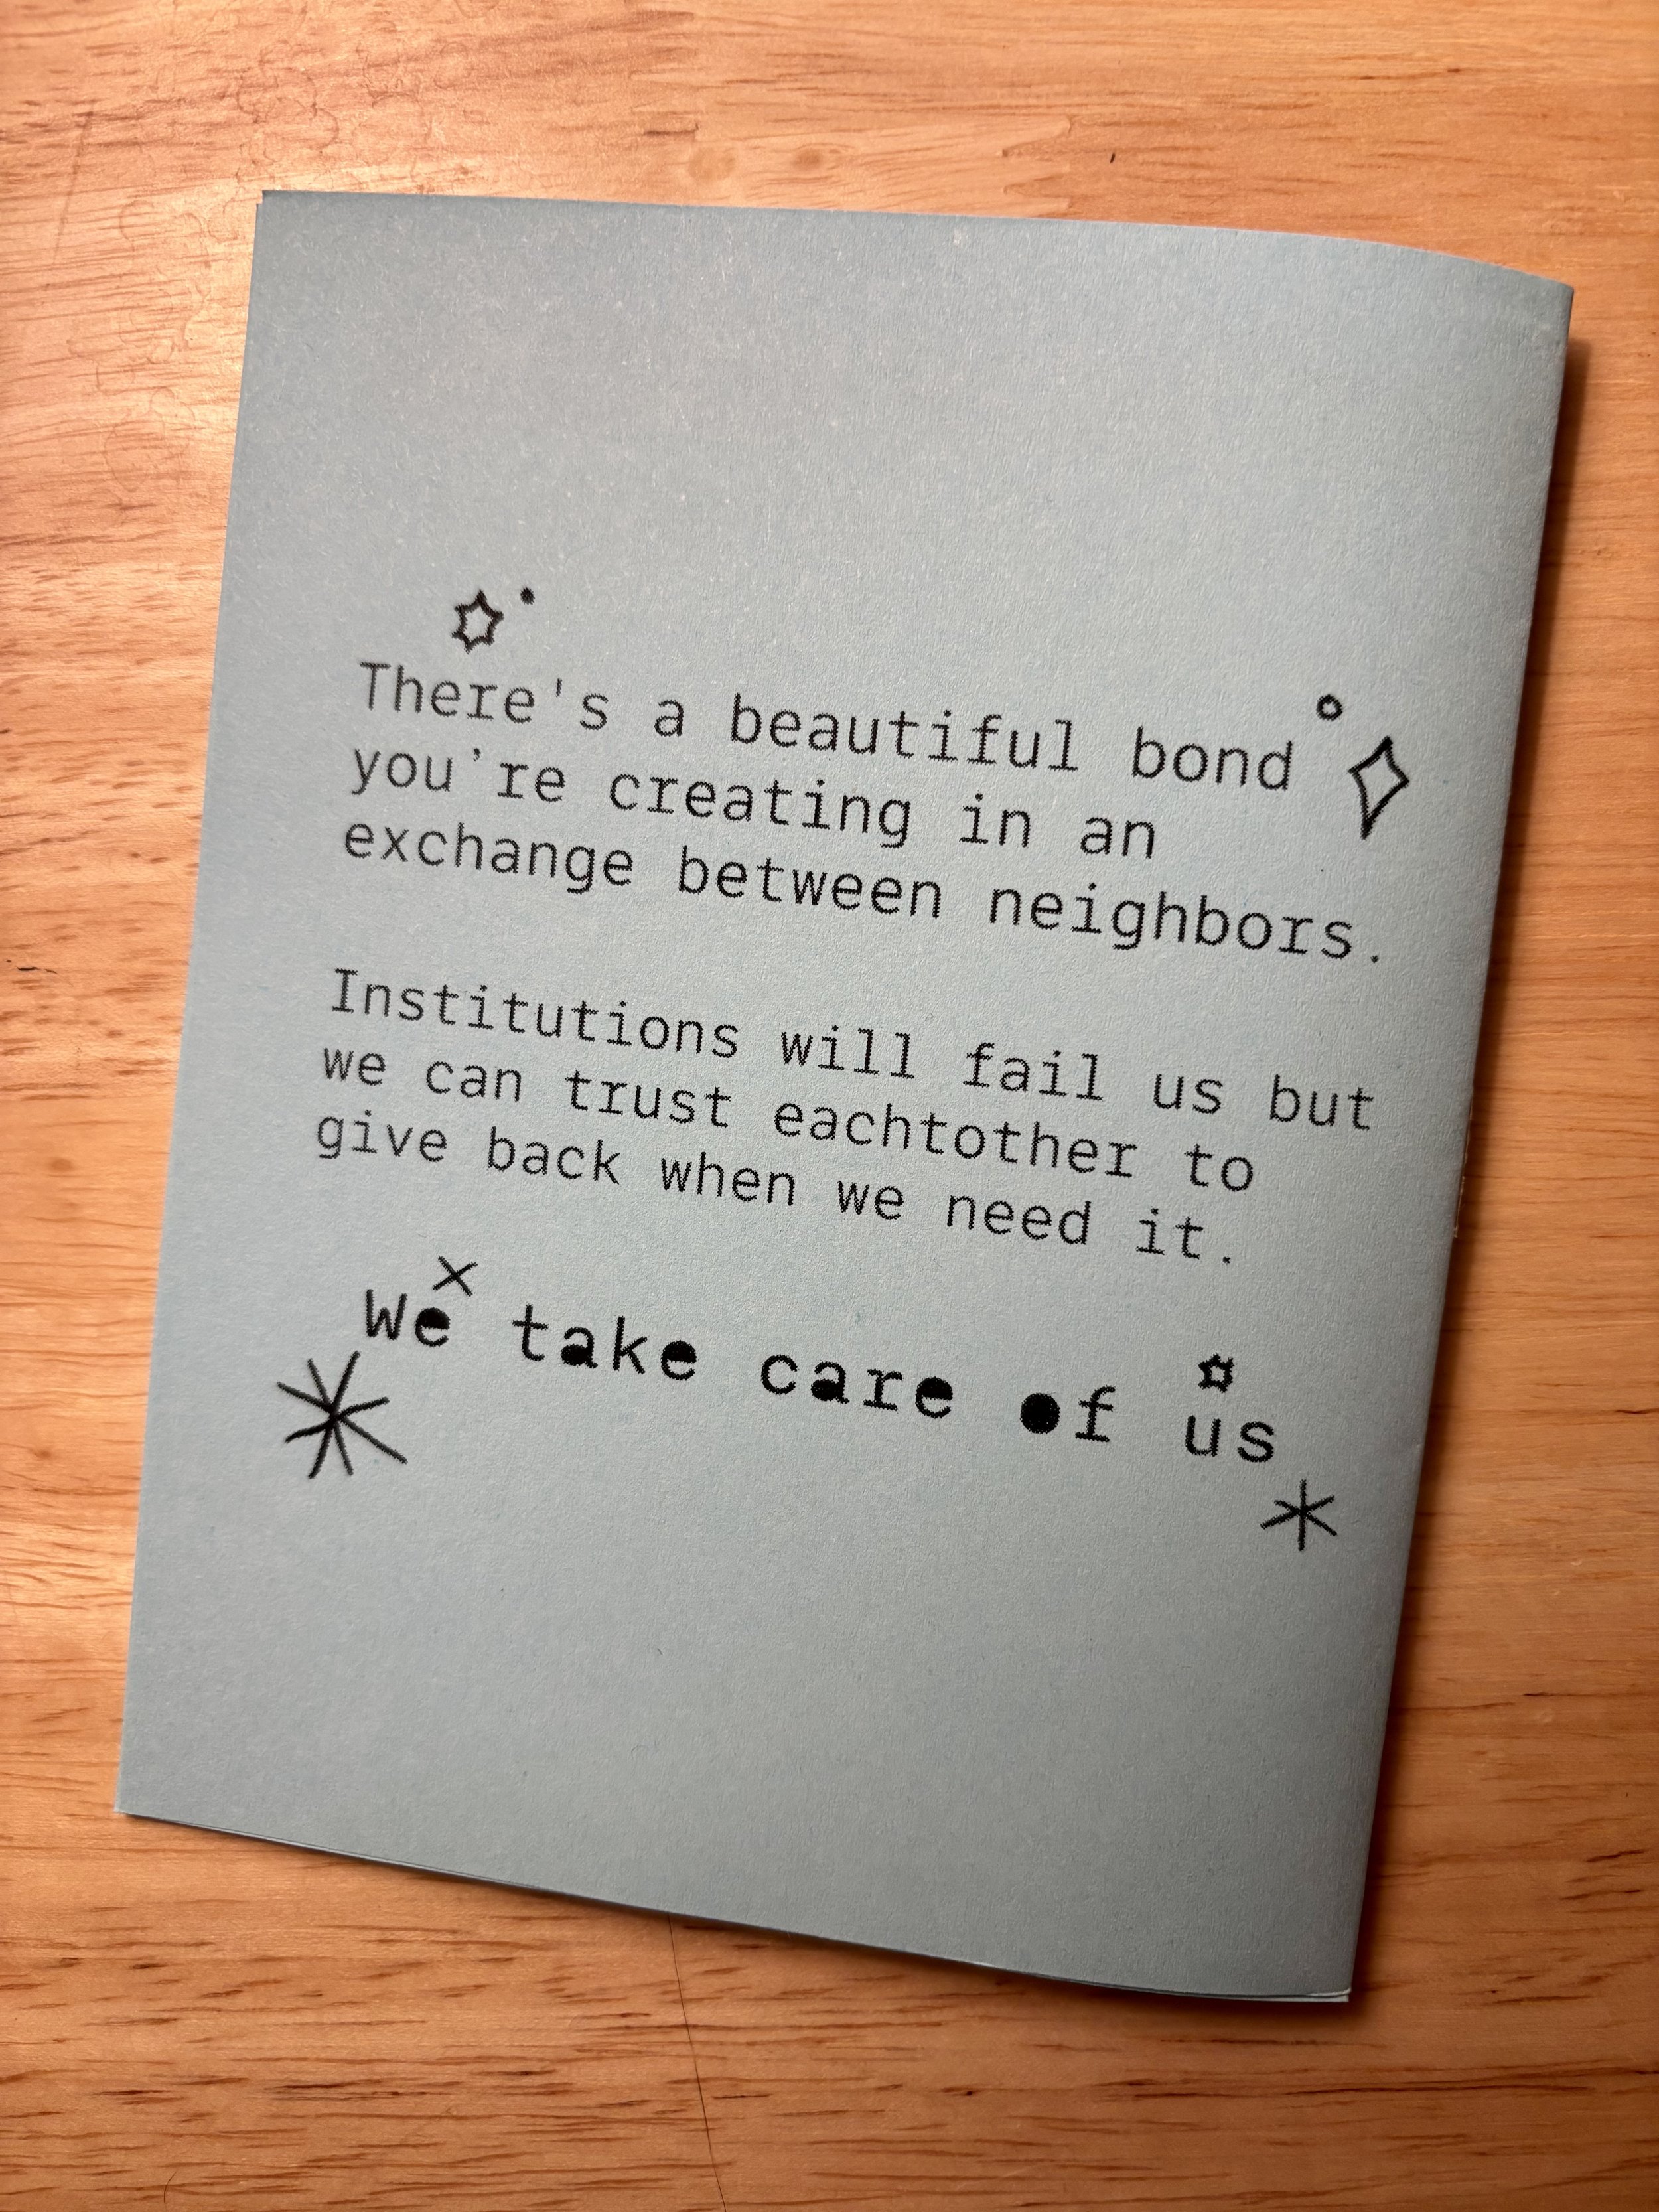 There's a beautiful bond
you're creating in an
exchange between neighbors.
Institutions will fail us but
we can trust eachtother to
give back when we need it.
We take care of us